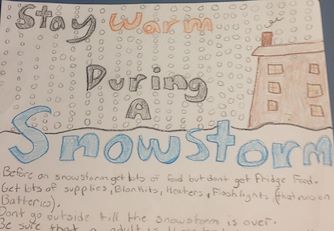 Stay Warm
During
A
Snowstorm
Before an snowstorm get lots of food but dont get fridge food.
Get lots of supplies, Blankits, Heaters, Flashlights (that run on
Batteries).
Dont go outside till the snowstorm is over.
Be sure that a adult is